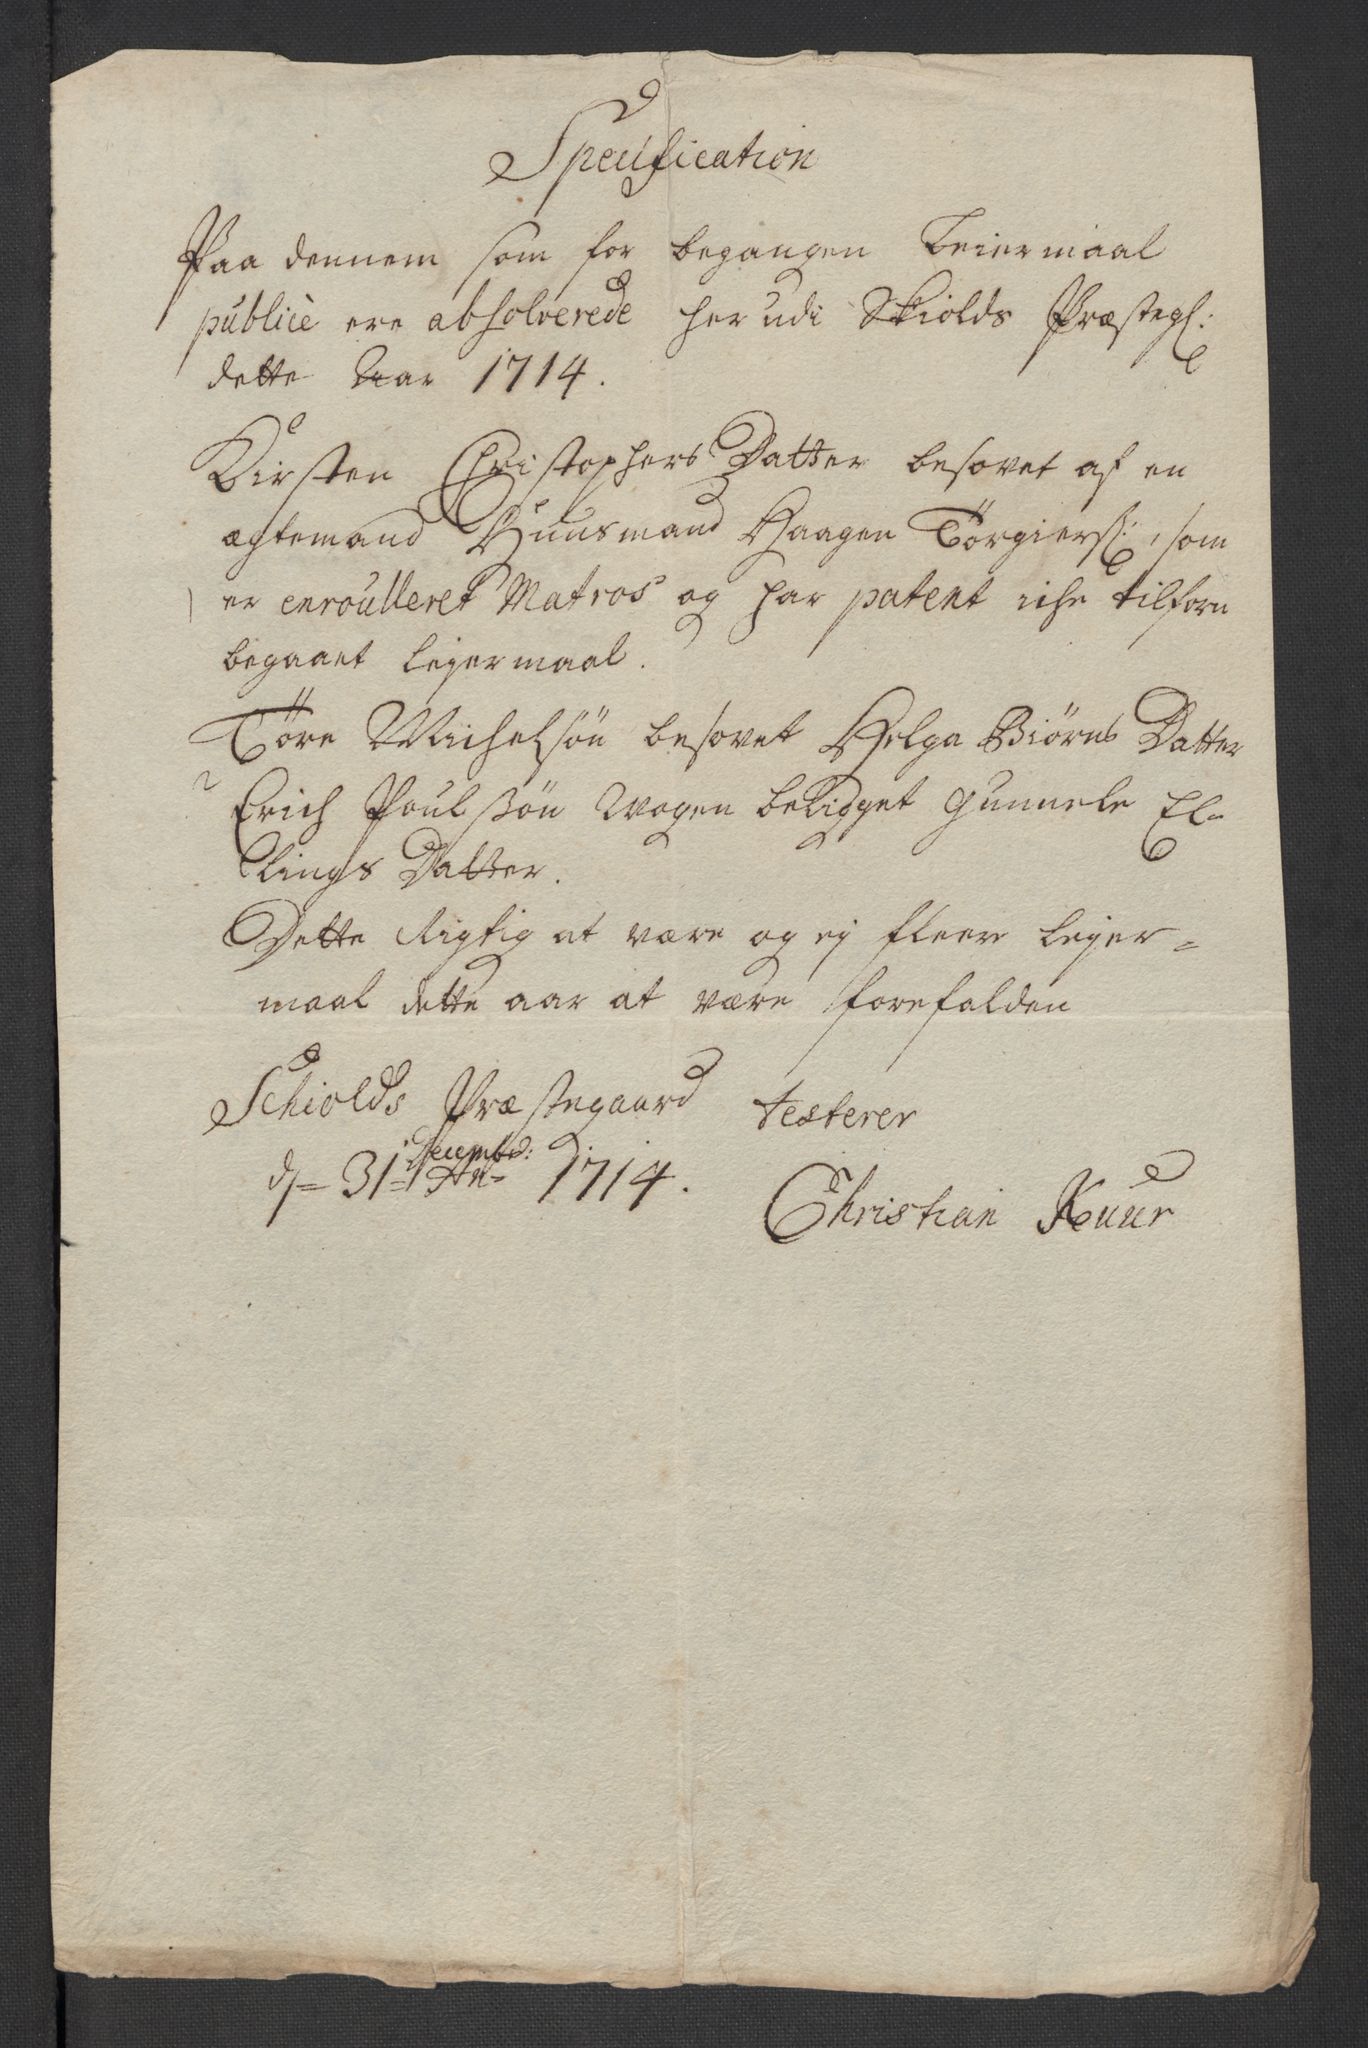 Specification
Paa dennem som for begangen Leiermaal
publicè ere absolverede her udi Skiolds Præstegl:
dette Aar 1714.
Kirsten Christophers Datter besovet af en
ægtemand Huusmand Haagen Törgierss:, som
er enroulleret Matros og har patent iche tilforn
begaaet lejermaal.
Töre Michelsön besovet Helga Biörns Datter
Erich Poulssön Wogen beligget Gunnele El-
lings Datter.
Dette Rigtig at være og ej fleere lejer=
maal dette aar at være forefalden
Schiolds Præstegaard testerer
Decembr:
d= 31= 1714.
Christian Kuur